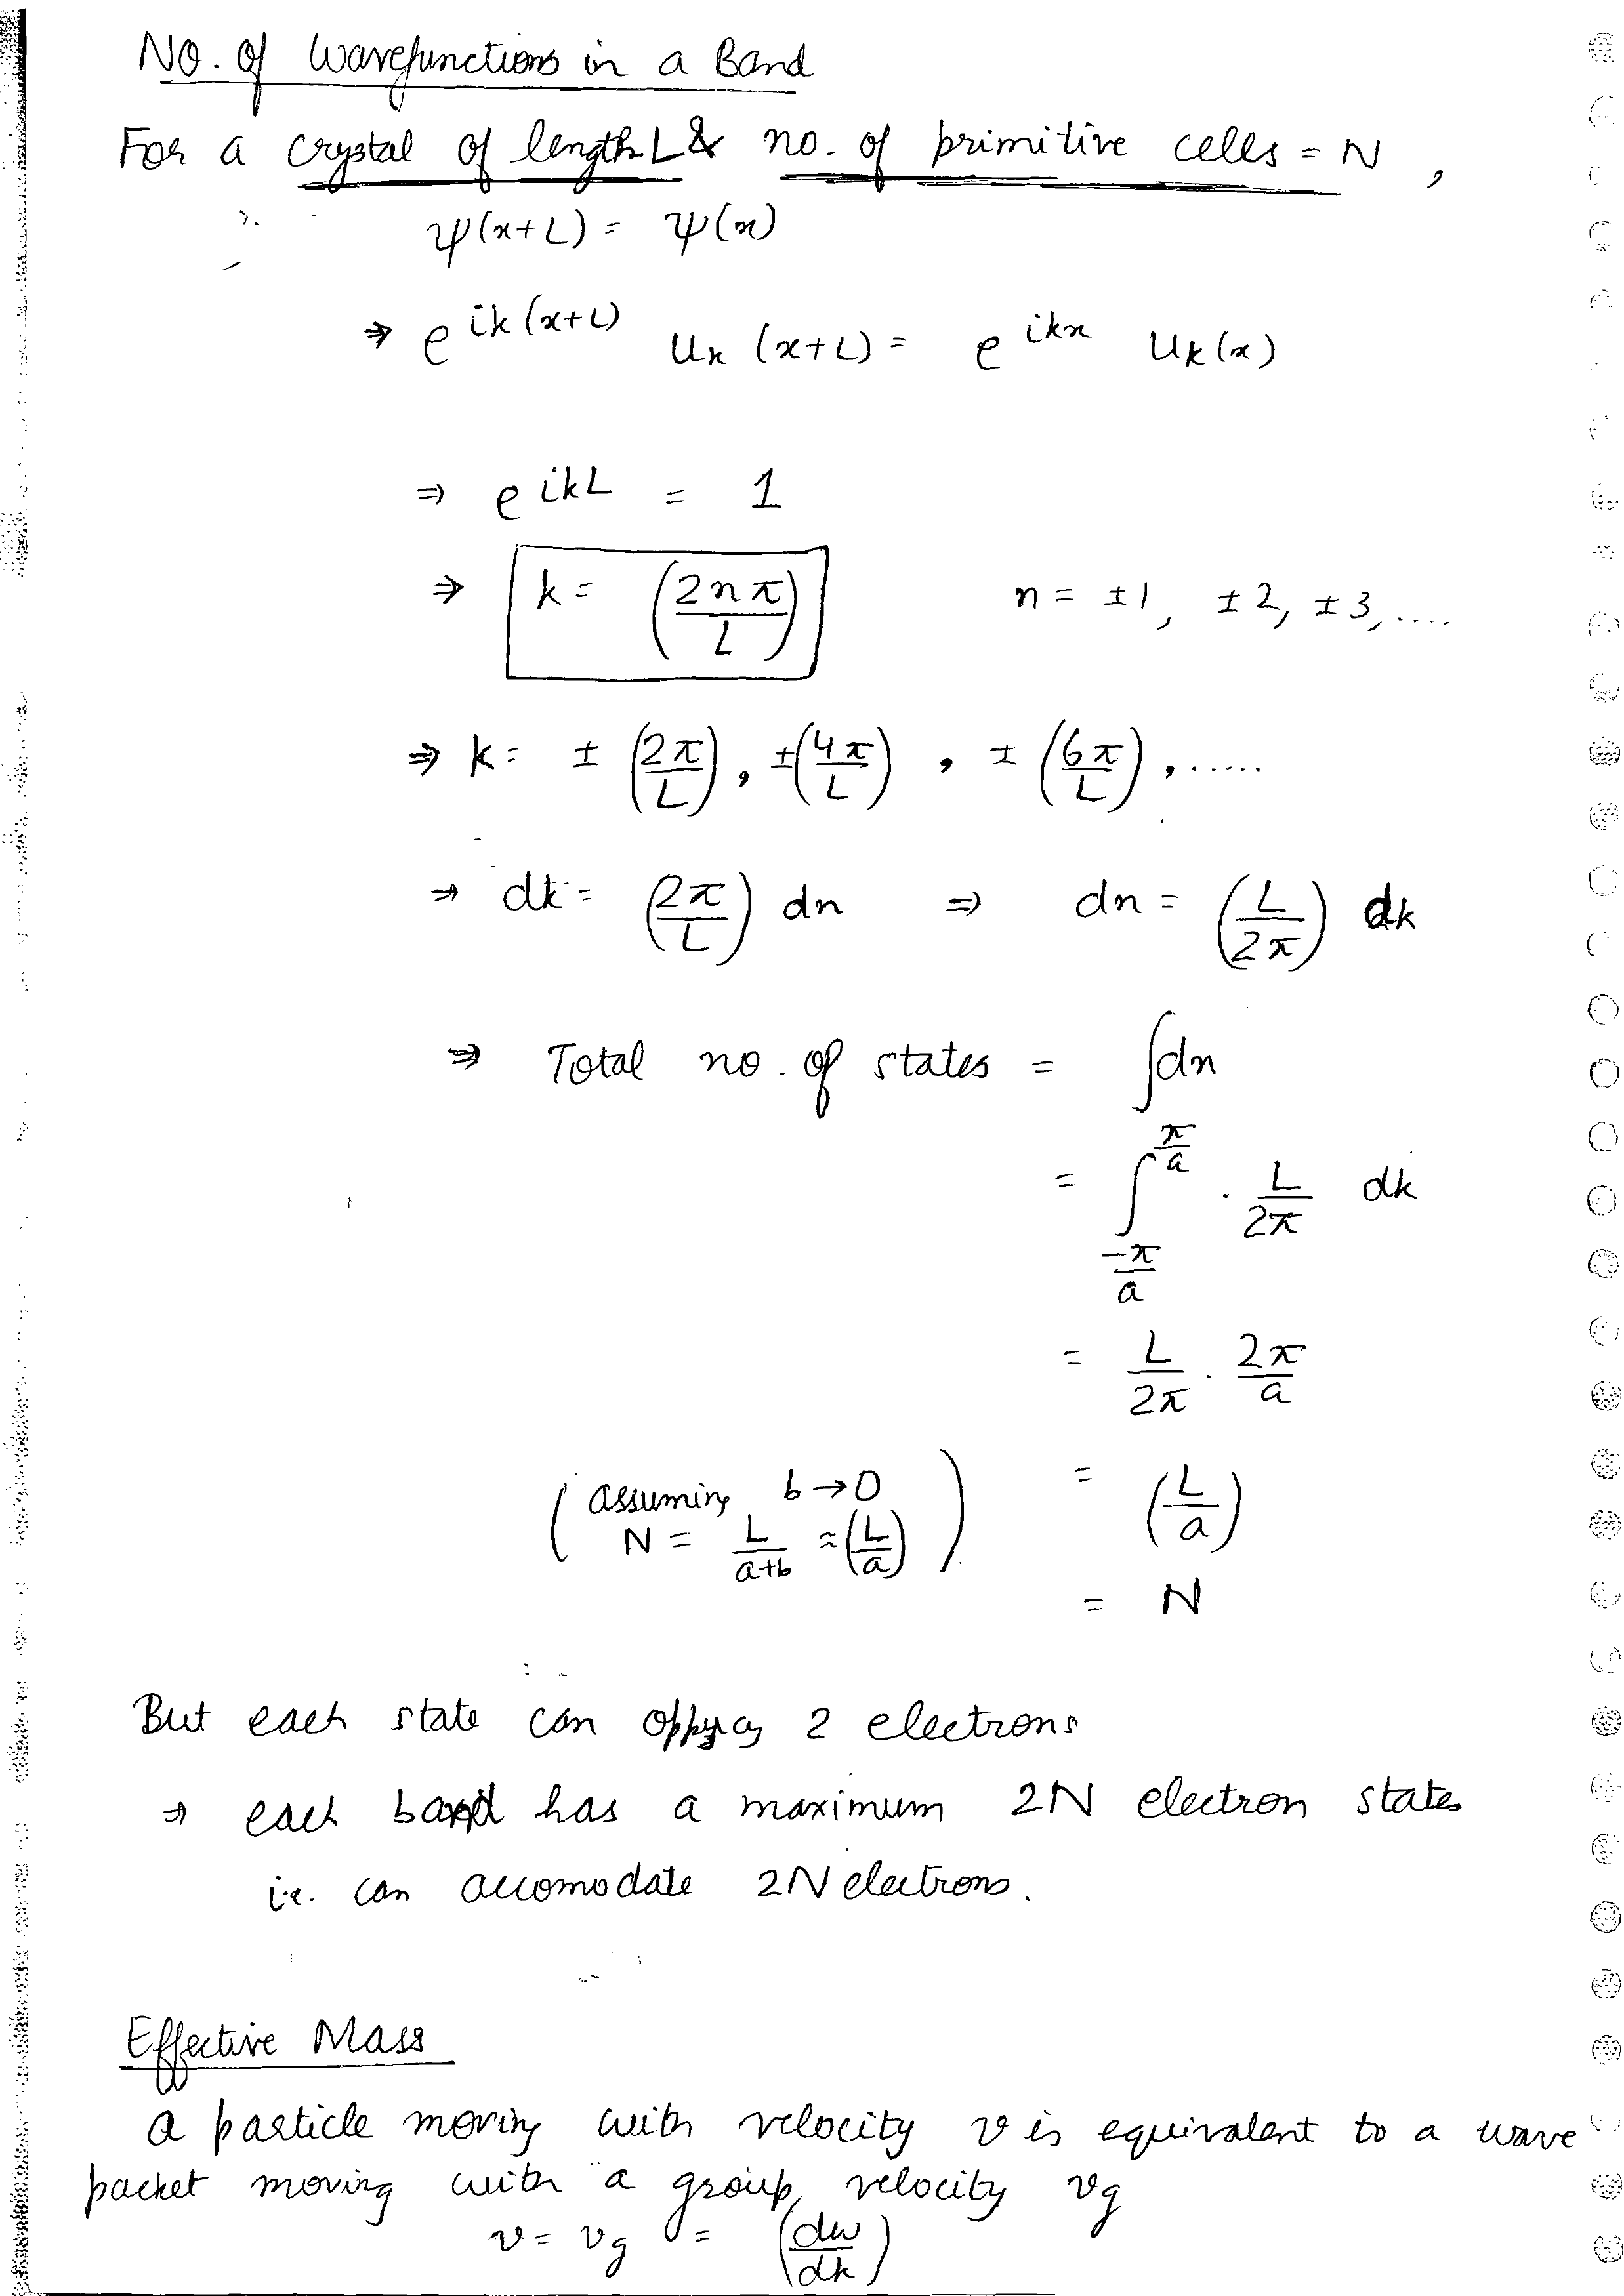 No. of Wavefunctions in a Band
For a crystal of length L & no. of primitive cells = N ,
ψ(x+L) = ψ(x)
⇒ e^{ik(x+L)} u_k (x+L) = e^{ikx} u_k(x)
⇒ e^{ikL} = 1
⇒ k = (2nπ/L) n = ±1, ±2, ±3, ....
⇒ k = ± (2π/L), ±(4π/L), ± (6π/L), .....
⇒ dk = (2π/L) dn ⇒ dn = (L/2π) dk
⇒ Total no. of states = ∫dn
= ∫_{-π/a}^{π/a} · L/2π dk
= L/2π · 2π/a
(assuming b→0 N = L/a+b ≈ (L/a)) = (L/a)
= N
But each state can 2 electrons
⇒ each band has a maximum 2N electron states
i.e. can accomodate 2N electrons.
Effective Mass
A particle moving with velocity v is equivalent to a wave
packet moving with a group velocity v_g
v = v_g = (dω/dk)